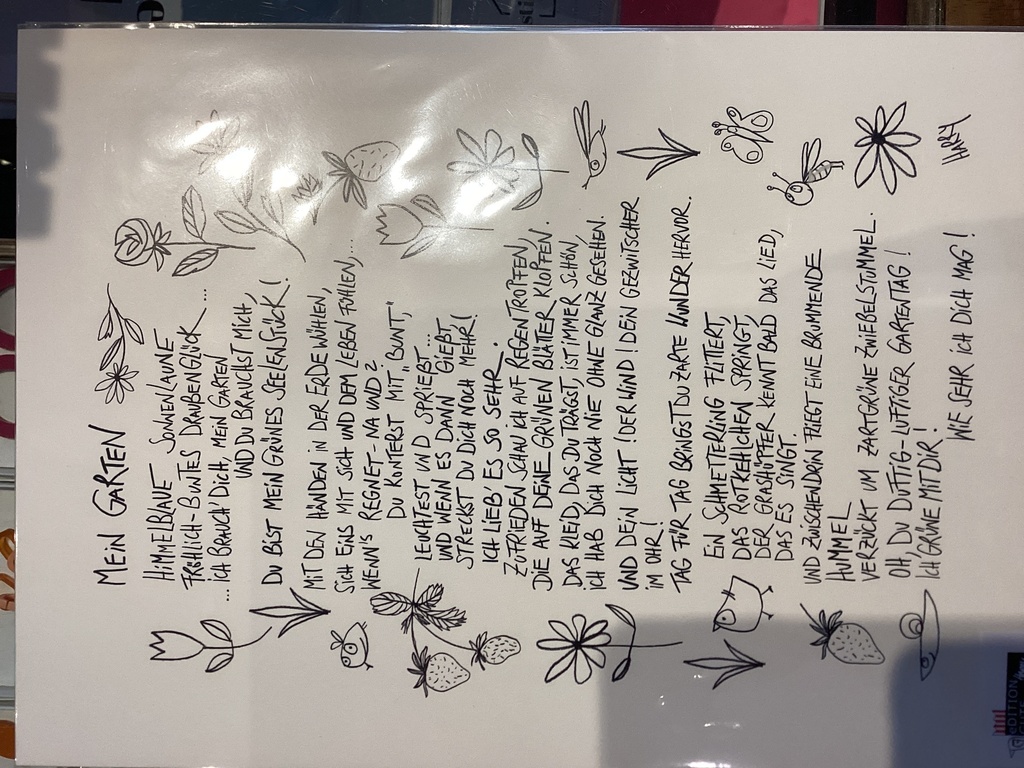 MEIN GARTEN
HIMMELBLAUE SONNENLAUNE
FRÖHLICH-BUNTES DRAUßENGLÜCK...
...ICH BRAUCH DICH, MEIN GARTEN
UND DU BRAUCHST MICH,
DU BIST MEIN GRÜNES SEELENSTÜCK!
MIT DEN HÄNDEN IN DER ERDE WÜHLEN,
SICH EINS MIT SICH UND DEM LEBEN FÜHLEN,...
WENN'S REGNET-NA UND?
DU KONTERST MIT „BUNT,"
LEUCHTEST UND SPRIEßT...
UND WENN ES DANN GIEßT
STRECKST DU DICH NOCH MEHR!
ICH LIEB ES SO SEHR.
ZUFRIEDEN SCHAU ICH AUF REGENTROPFEN,
DIE AUF DEINE GRÜNEN BLÄTTER KLOPFEN.
DAS KLEID, DAS DU TRÄGST, IST IMMER SCHÖN,
ICH HAB DICH NOCH NIE OHNE GLANZ GESEHEN.
UND DEIN LICHT! DER WIND! DEIN GEZWITSCHER
IM OHR!
TAG FÜR TAG BRINGST DU ZARTE WUNDER HERVOR.
EIN SCHMETTERLING FLITTERT,
DAS ROTKEHLCHEN SPRINGT,
DER GRASHÜPFER KENNT BALD DAS LIED,
DAS ES SINGT.
UND ZWISCHENDRIN FLIEGT EINE BRUMMENDE
HUMMEL
VERZÜCKT UM ZARTGRÜNE ZWIEBELSTUMMEL.
OH, DU DUFTIG-LUFTIGER GARTENTAG!
ICH GRÜNE MIT DIR!
WIE SEHR ICH DICH MAG!
EDITION